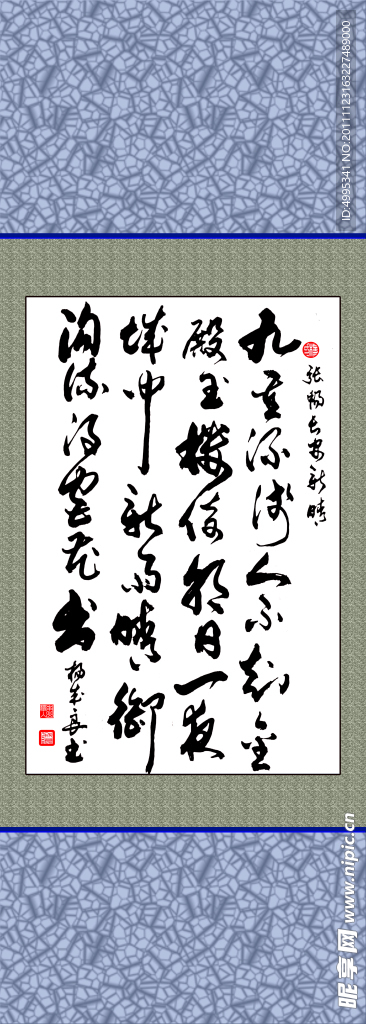 张畅长安新晴
九重深浅人不知金
殿玉楼倚朝日一夜
城中新雨晴御
沟流得宫花出
杨成书
ID:4995341 NO:20111123163227489000
昵享网 www.nipic.cn